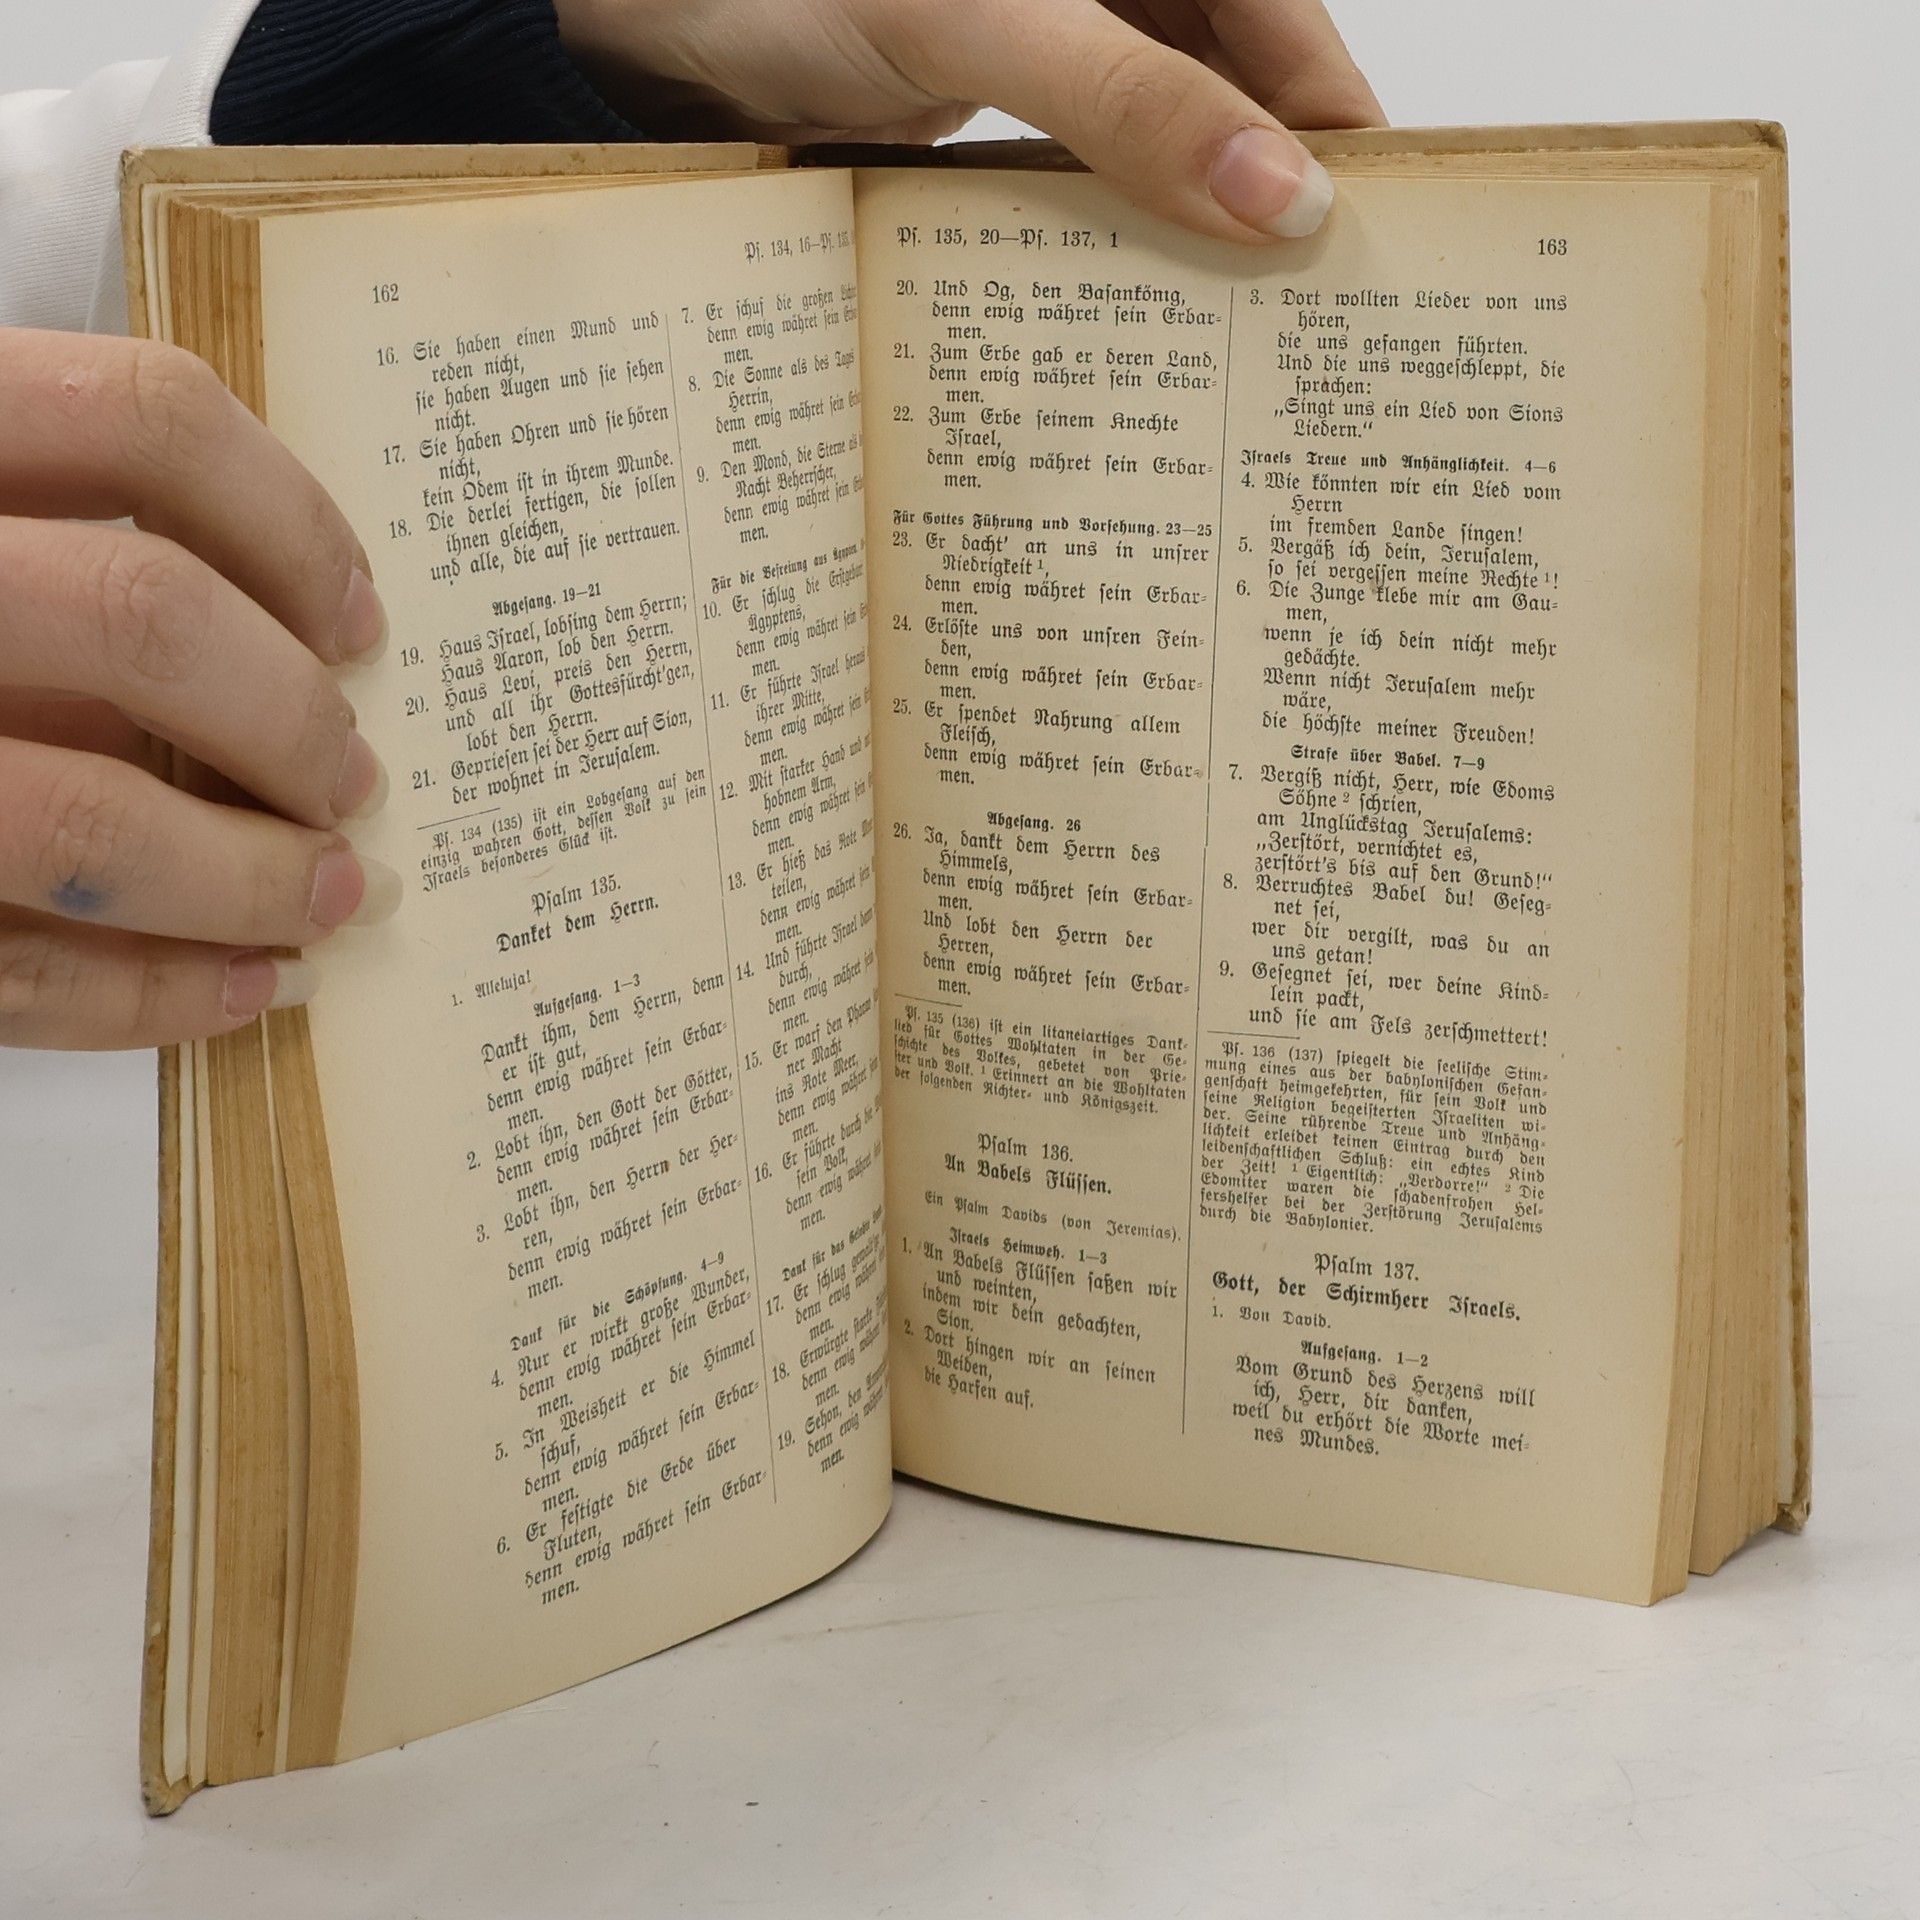 162
Ps. 134, 16—Ps. 135,
16. Sie haben einen Mund und
reden nicht,
sie haben Augen und sie sehen
nicht.
17. Sie haben Ohren und sie hören
nicht,
kein Odem ist in ihrem Munde.
18. Die derlei fertigen, die sollen
ihnen gleichen,
und alle, die auf sie vertrauen.
Abgesang. 19—21
19. Haus Israel, lobsing dem Herrn;
Haus Aaron, lob den Herrn.
20. Haus Levi, preis den Herrn,
und all ihr Gottesfürcht'gen,
lobt den Herrn.
21. Gepriesen sei der Herr auf Sion,
der wohnet in Jerusalem.
Ps. 134 (135) ist ein Lobgesang auf den
einzig wahren Gott, dessen Volk zu sein
Israels besonderes Glück ist.
Psalm 135.
Danket dem Herrn.
1. Alleluja!
Aufgesang. 1—3
Dankt ihm, dem Herrn, denn
er ist gut,
denn ewig währet sein Erbar-
men.
2. Lobt ihn, den Gott der Götter,
denn ewig währet sein Erbar-
men.
3. Lobt ihn, den Herrn der Her-
ren,
denn ewig währet sein Erbar-
men.
Dank für die Schöpfung. 4—9
4. Nur er wirkt große Wunder,
denn ewig währet sein Erbar-
men.
5. In Weisheit er die Himmel
schuf,
denn ewig währet sein Erbar-
men.
6. Er festigte die Erde über
Fluten,
denn ewig währet sein Erbar-
men.
7. Er schuf die großen
denn ewig währet sein
men.
8. Die Sonne als des Tages
Herrin,
denn ewig währet sein
men.
9. Den Mond, die Sterne als
Nacht Beherrscher,
denn ewig währet sein
men.
Für die Befreiung aus Ägypten.
10. Er schlug die Erstgeburt
Ägyptens,
denn ewig währet sein
men.
11. Er führte Israel heraus
ihrer Mitte,
denn ewig währet sein
men.
12. Mit starker Hand und
hobnem Arm,
denn ewig währet sein
men.
13. Er hieß das Rote
teilen,
denn ewig währet sein
men.
14. Und führte Israel
durch,
denn ewig währet sein
men.
15. Er warf den Pharao
ner Macht
ins Rote Meer,
denn ewig währet sein
men.
16. Er führte durch
sein Volk,
denn ewig währet
men.
Dank für das Gelobte
17. Er schlug
denn ewig währet
men.
18. Erwürgte starke
denn ewig währet
men.
19. Sehon, den
denn ewig währet
men.
Ps. 135, 20—Ps. 137, 1
163
20. Und Og, den Basankönig,
denn ewig währet sein Erbar-
men.
21. Zum Erbe gab er deren Land,
denn ewig währet sein Erbar-
men.
22. Zum Erbe seinem Knechte
Israel,
denn ewig währet sein Erbar-
men.
Für Gottes Führung und Vorsehung. 23—25
23. Er dacht' an uns in unsrer
Niedrigkeit ¹,
denn ewig währet sein Erbar-
men.
24. Erlöste uns von unsren Fein-
den,
denn ewig währet sein Erbar-
men.
25. Er spendet Nahrung allem
Fleisch,
denn ewig währet sein Erbar-
men.
Abgesang. 26
26. Ja, dankt dem Herrn des
Himmels,
denn ewig währet sein Erbar-
men.
Und lobt den Herrn der
Herren,
denn ewig währet sein Erbar-
men.
Ps. 135 (136) ist ein litaneiartiges Dank-
lied für Gottes Wohltaten in der Ge-
schichte des Volkes, gebetet von Prie-
ster und Volk. ¹ Erinnert an die Wohltaten
der folgenden Richter- und Königszeit.
Psalm 136.
An Babels Flüssen.
Ein Psalm Davids (von Jeremias).
Israels Heimweh. 1—3
1. An Babels Flüssen saßen wir
und weinten,
indem wir dein gedachten,
Sion.
2. Dort hingen wir an seinen
Weiden,
die Harfen auf.
3. Dort wollten Lieder von uns
hören,
die uns gefangen führten.
Und die uns weggeschleppt, die
sprachen:
„Singt uns ein Lied von Sions
Liedern.“
Israels Treue und Anhänglichkeit. 4—6
4. Wie könnten wir ein Lied vom
Herrn
im fremden Lande singen!
5. Vergäß ich dein, Jerusalem,
so sei vergessen meine Rechte ¹!
6. Die Zunge klebe mir am Gau-
men,
wenn je ich dein nicht mehr
gedächte.
Wenn nicht Jerusalem mehr
wäre,
die höchste meiner Freuden!
Strafe über Babel. 7—9
7. Vergiß nicht, Herr, wie Edoms
Söhne ² schrien,
am Unglückstag Jerusalems:
„Zerstört, vernichtet es,
zerstört's bis auf den Grund!“
8. Verruchtes Babel du! Geseg-
net sei,
wer dir vergilt, was du an
uns getan!
9. Gesegnet sei, wer deine Kind-
lein packt,
und sie am Fels zerschmettert!
Ps. 136 (137) spiegelt die seelische Stim-
mung eines aus der babylonischen Gefan-
genschaft heimgekehrten, für sein Volk und
seine Religion begeisterten Israeliten wi-
der. Seine rührende Treue und Anhäng-
lichkeit erleidet keinen Eintrag durch den
leidenschaftlichen Schluß: ein echtes Kind
der Zeit! ¹ Eigentlich: „Verdorre!“ ² Die
Edomiter waren die schadenfrohen Hel-
fershelfer bei der Zerstörung Jerusalems
durch die Babylonier.
Psalm 137.
Gott, der Schirmherr Israels.
1. Von David.
Aufgesang. 1—2
Vom Grund des Herzens will
ich, Herr, dir danken,
weil du erhört die Worte mei-
nes Mundes.